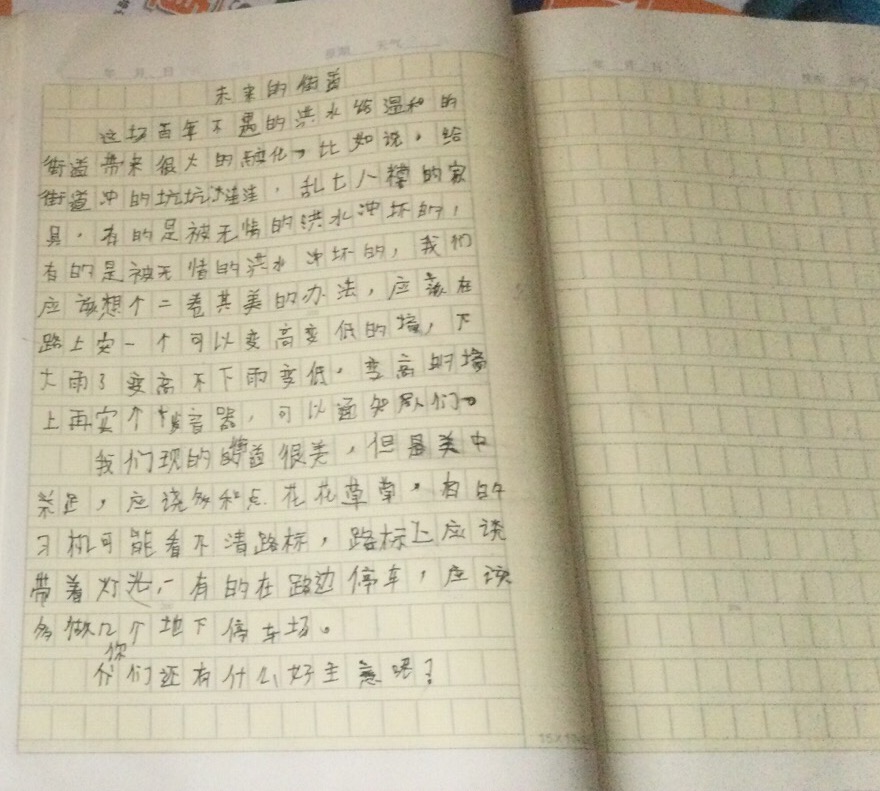 年 月 日 星期 天气
未来的街道
这场百年不遇的洪水给温和的
街道带来很大的变化,比如说,给
街道冲的坑坑洼洼,乱七八糟的家
具,有的是被无情的洪水冲坏的,
有的是被无情的洪水冲坏的,我们
应该想个二卷其美的办法,应该在
路上安一个可以变高变低的墙,下
大雨了变高不下雨变低。变高的墙
上再安个音器,可以通知我们。
我们现的街道很美,但是美中
足,应该多和点花花草草。有的
司机可能看不清路标,路标上应该
带着灯光,有的在路边停车,应该
多做几个地下停车场。
你们还有什么好主意呢?
年 月 日